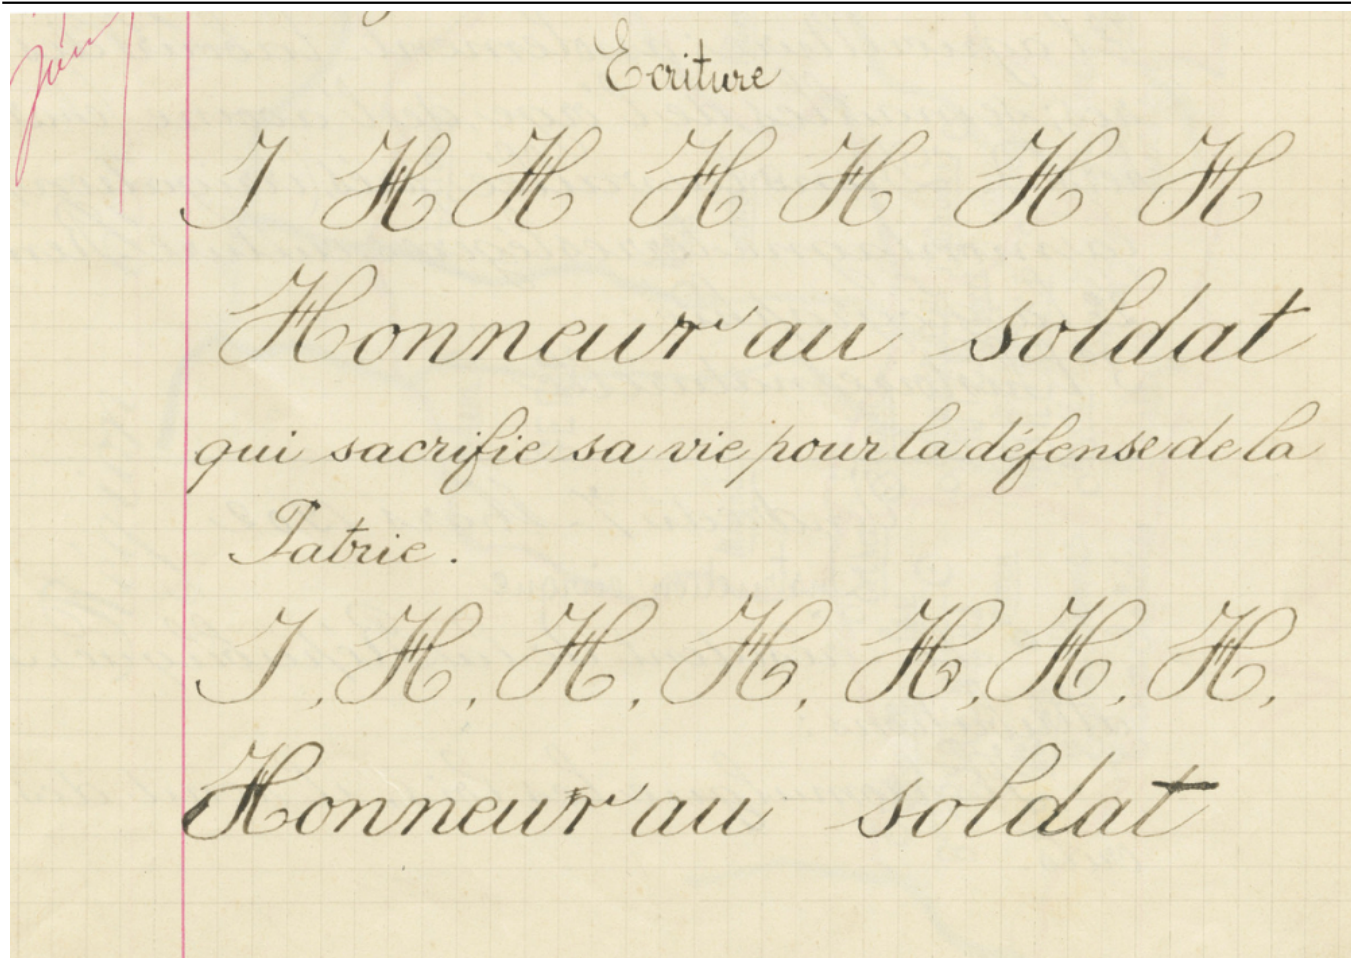 Ecriture
J H H H H H H
Honneur au soldat
qui sacrifie sa vie pour la défense de la
Patrie.
J, H, H, H, H, H, H,
Honneur au soldat